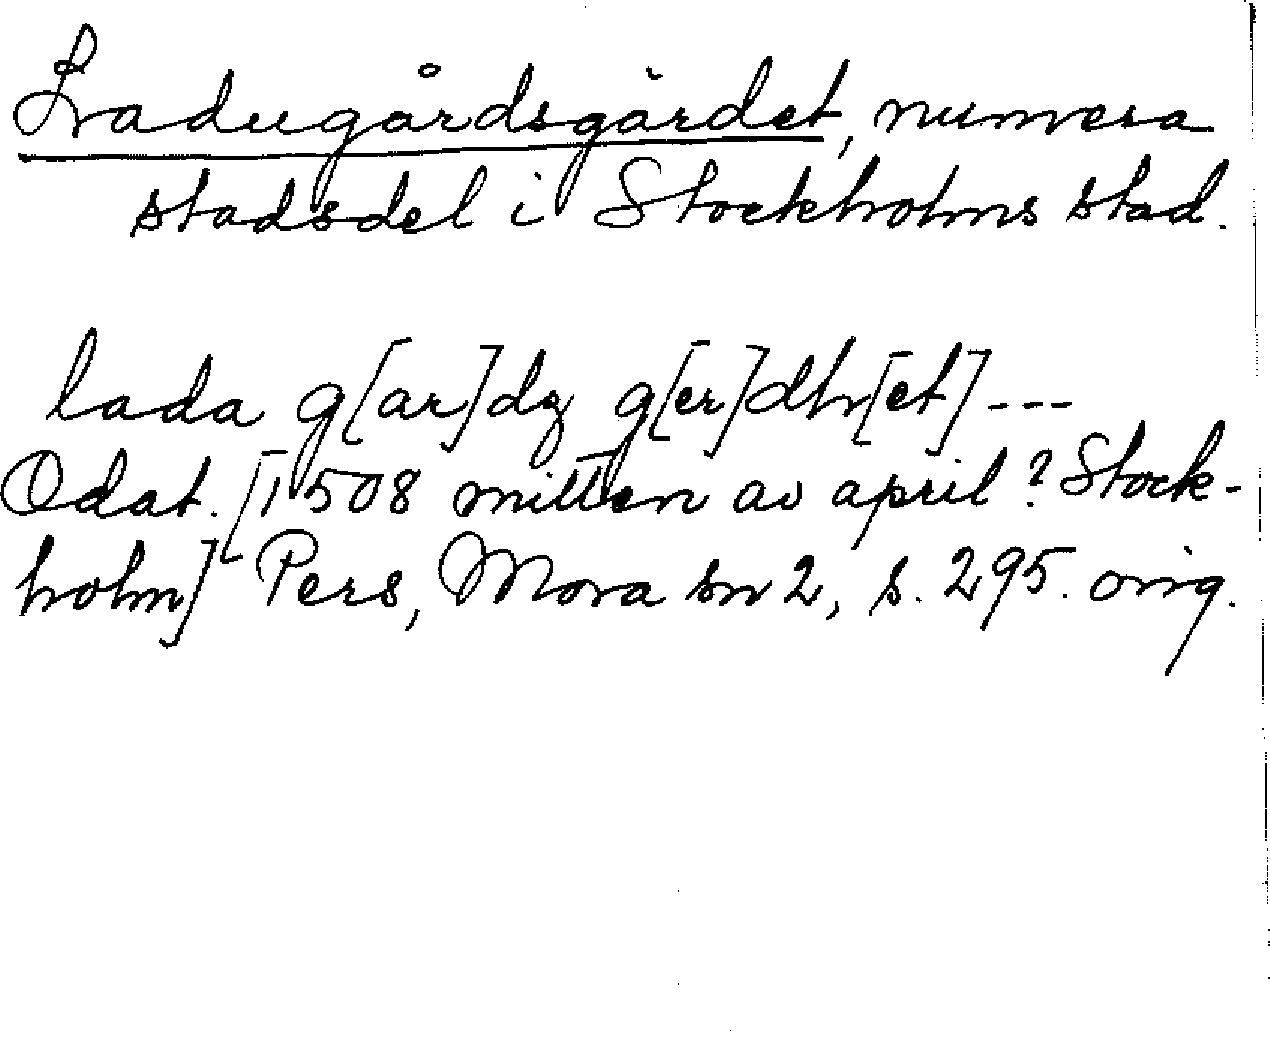 Ladugårdsgärdet, numera
stadsdel i Stockholms stad.
lada g[ar]dz g[er]dh[et] ---
Odat. [1508 mitten av april? Stock-
holm] Pers, Mora sn 2, s. 295. orig.